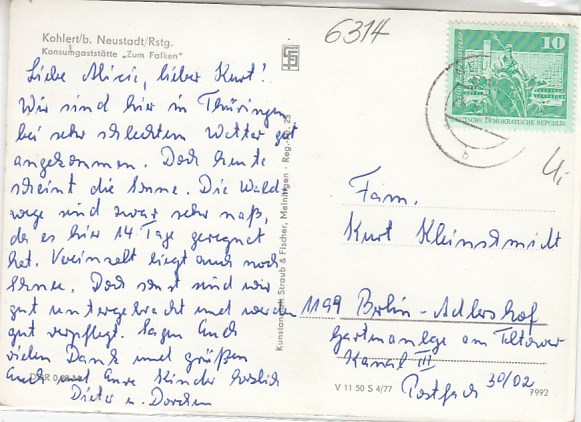 Kahlert/b. Neustadt/Rstg.
Konsumgaststätte „Zum Falken"
6314
10
DEUTSCHE DEMOKRATISCHE REPUBLIK
Liebe Mizie, lieber Kurt!
Wir sind hier in Thüringen
bei sehr schlechten Wetter gut
angekommen. Doch heute
scheint die Sonne. Die Wald
wege sind zwar sehr naß,
da es hier 14 Tage geregnet
hat. Vereinzelt liegt auch noch
Schnee. Doch sonst sind wir
gut untergebracht und werden
gut verpflegt. Sagen Euch
vielen Dank und grüßen
Euch und Eure Kinder herzlich
Dieter u. Dorchen
Kunstanstalt Straub & Fischer, Meiningen - Reg.-Nr. 25
Fam.
Kurt Kleinschmidt
1199 Berlin-Adlershof
Gartenanlage am Teltower
Kanal III
Postfach 30/02
V 11 50 S 4/77
7992